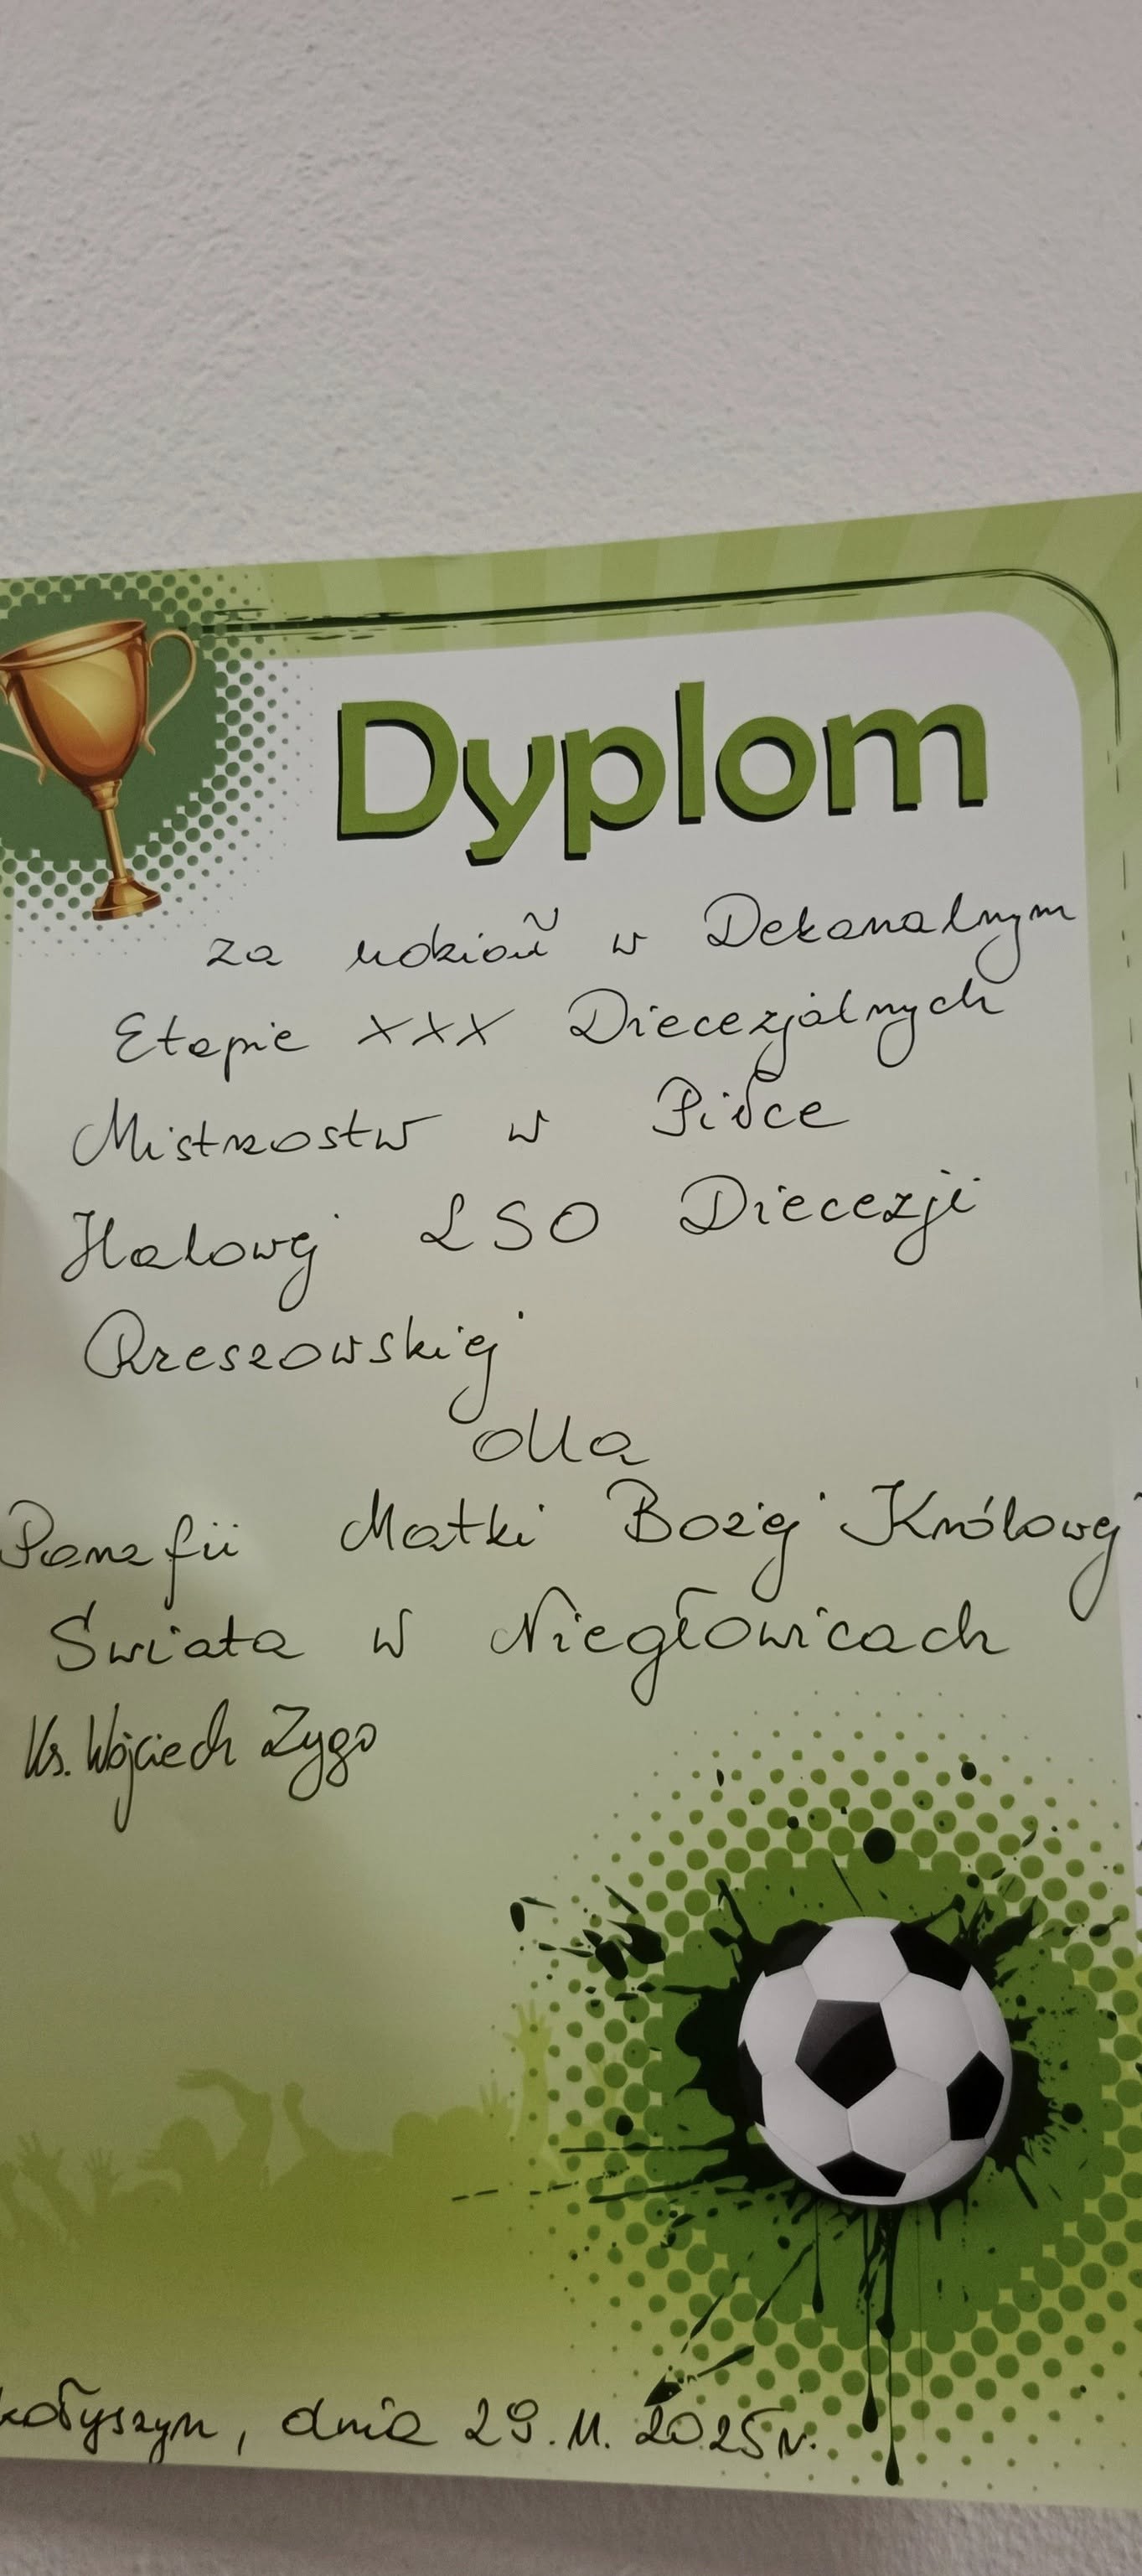 Dyplom
za udział w Dekanalnym
Etapie XXX Diecezjalnych
Mistrzostw w Piłce
Halowej LSO Diecezji
Rzeszowskiej
dla
Parafii Matki Bożej Królowej
Świata w Niegłowicach
Ks. Wojciech Zygo
kołyszyn, dnia 29.11.2025r.